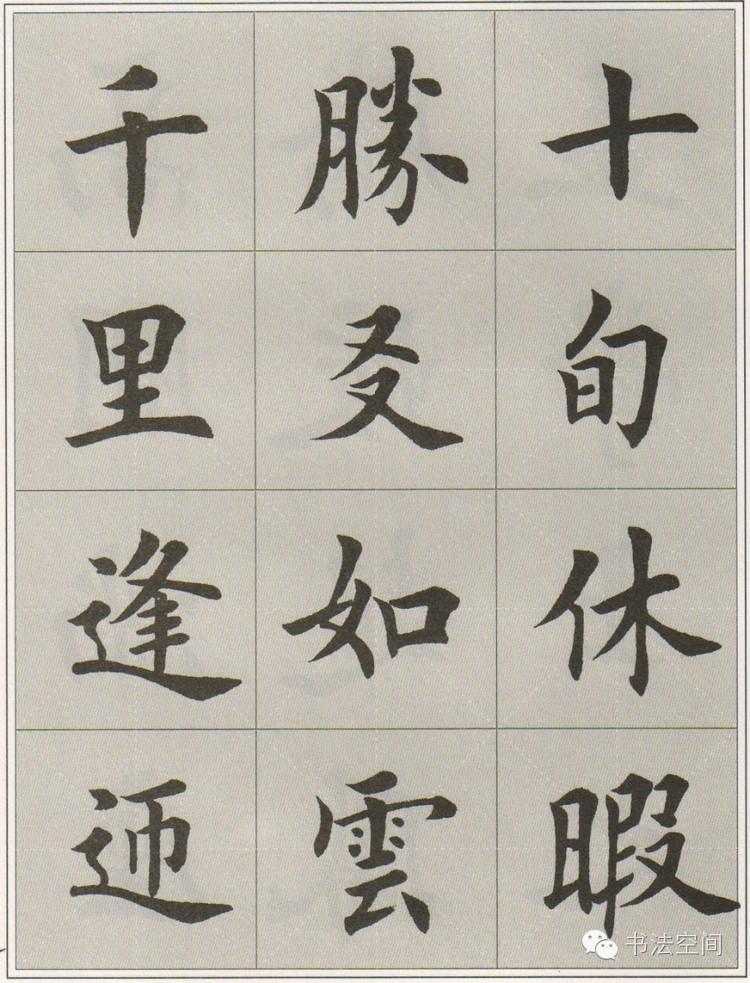 十旬休暇
勝友如雲
千里逢迎
书法空间